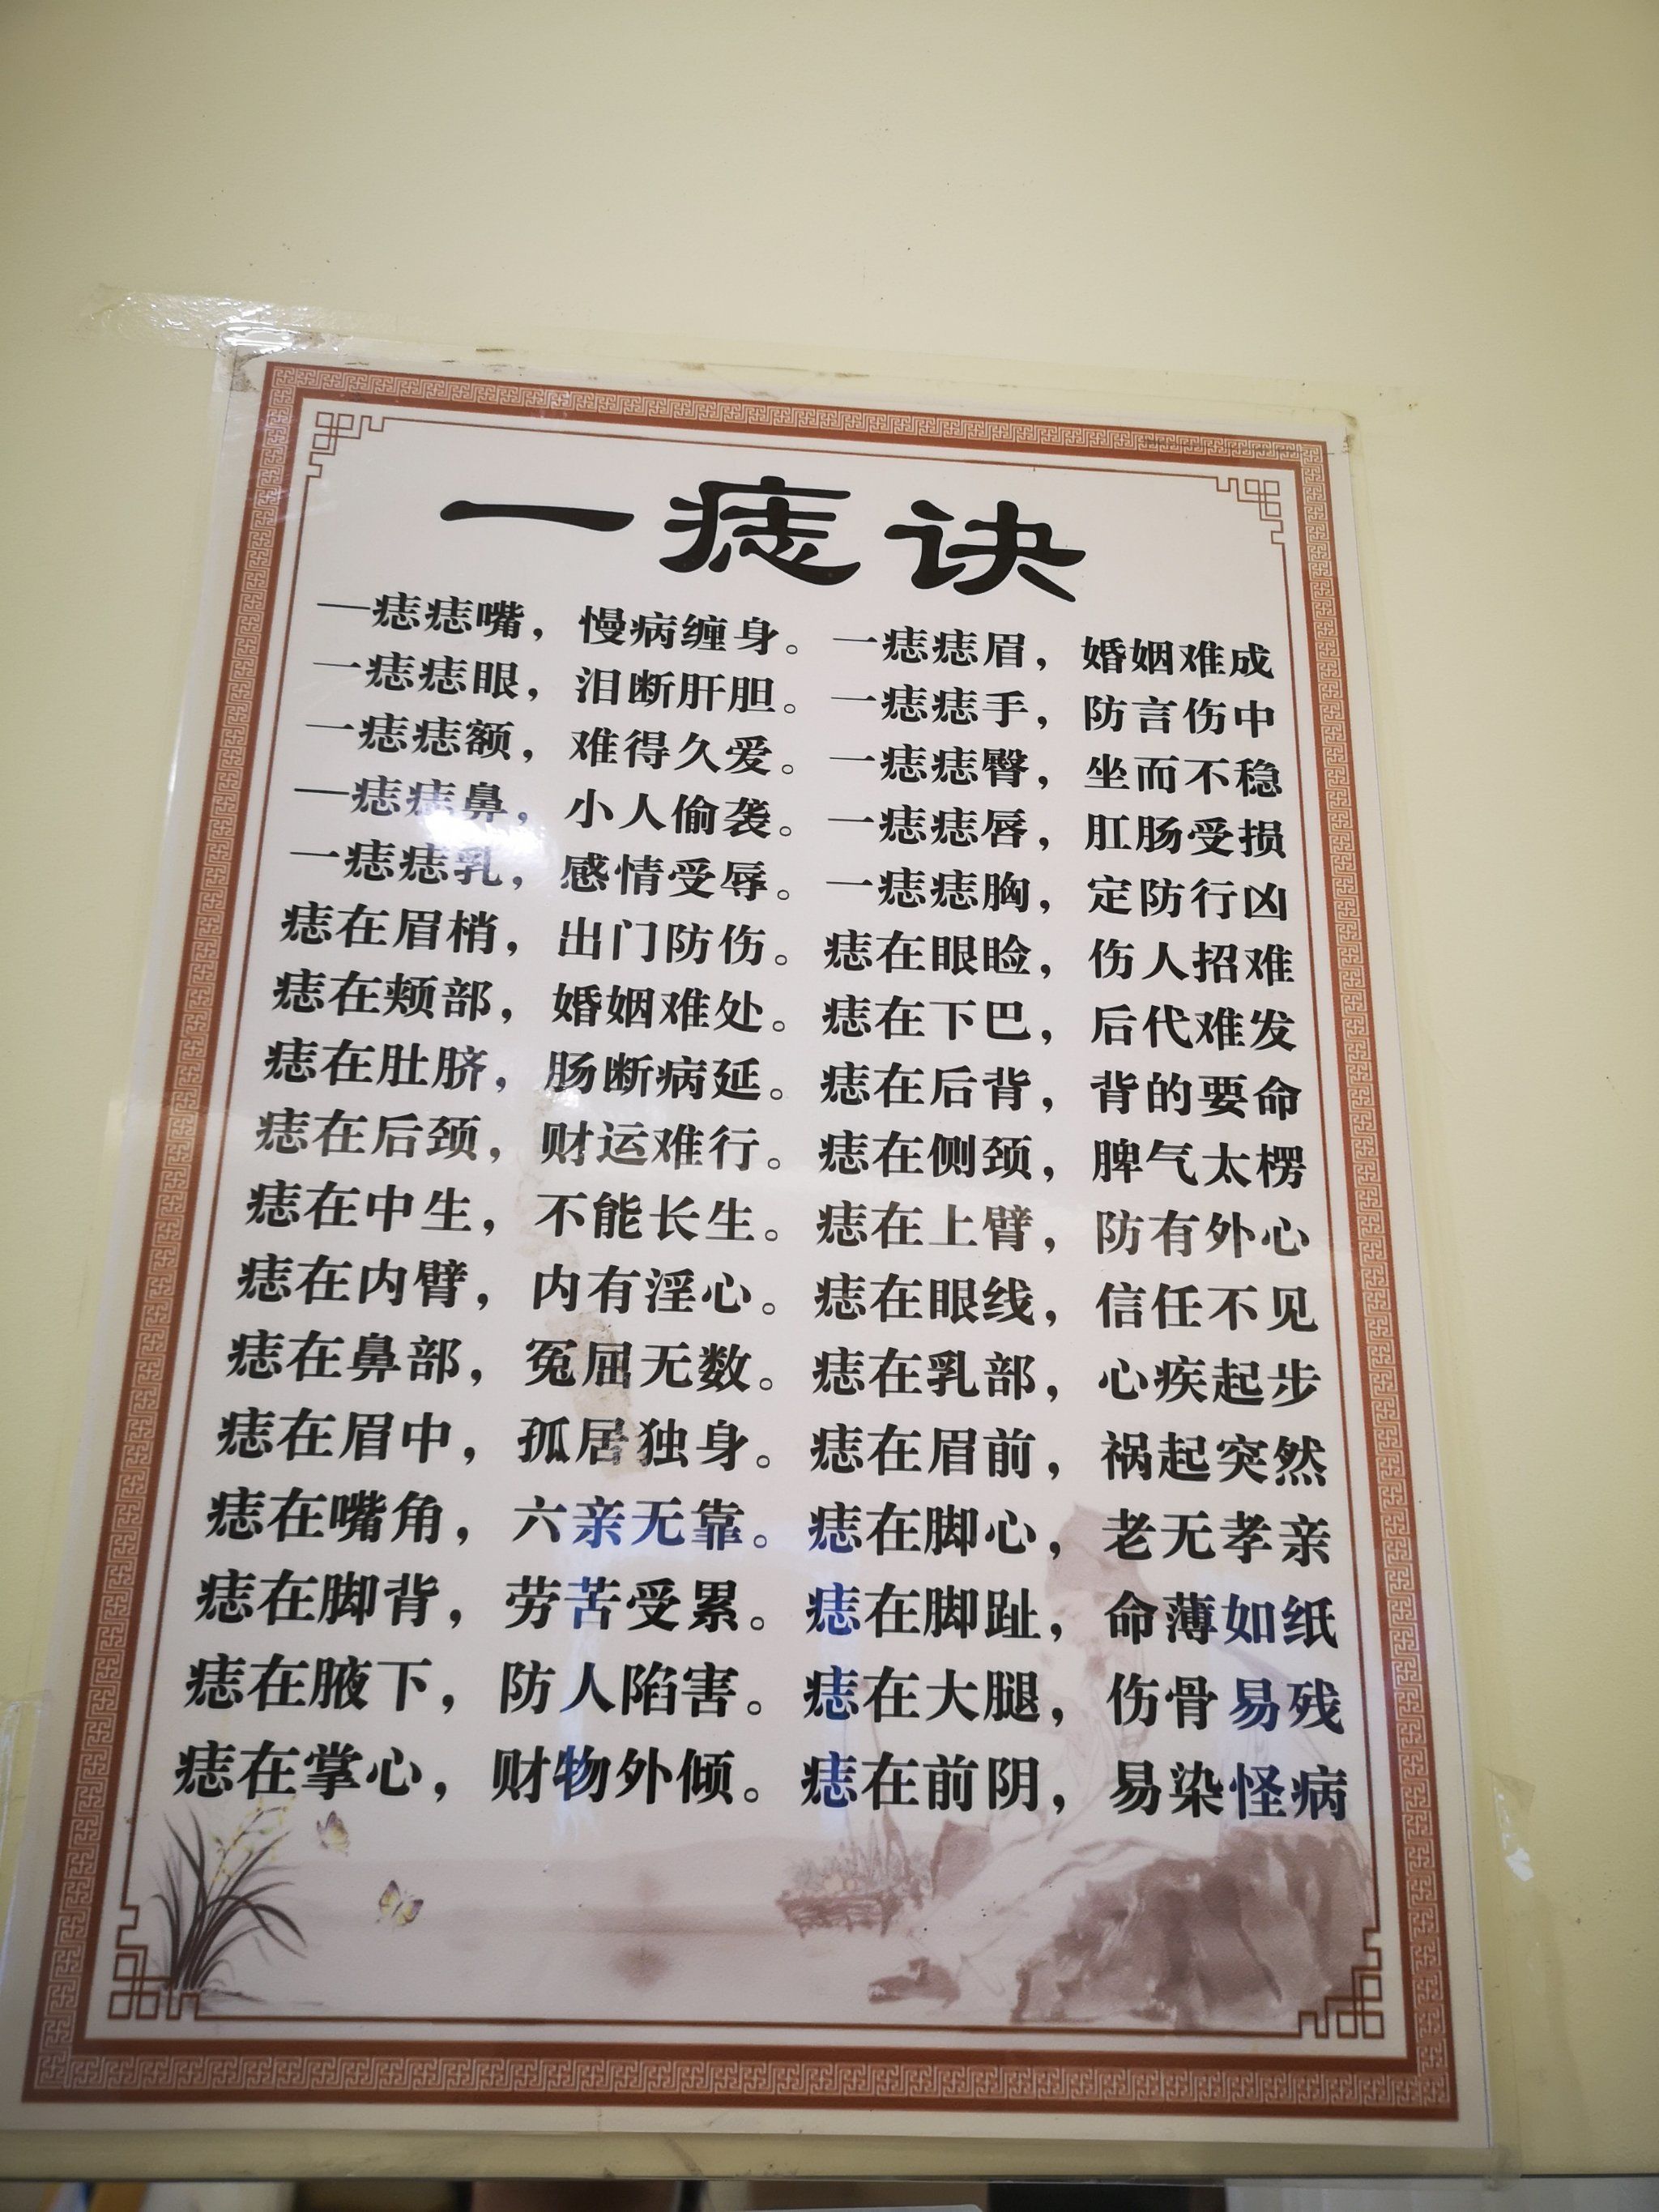 一痣诀
一痣痣嘴，慢病缠身。一痣痣眉，婚姻难成
一痣痣眼，泪断肝胆。一痣痣手，防言伤中
一痣痣额，难得久爱。一痣痣臀，坐而不稳
一痣痣鼻，小人偷袭。一痣痣唇，肛肠受损
一痣痣乳，感情受辱。一痣痣胸，定防行凶
痣在眉梢，出门防伤。痣在眼睑，伤人招难
痣在颊部，婚姻难处。痣在下巴，后代难发
痣在肚脐，肠断病延。痣在后背，背的要命
痣在后颈，财运难行。痣在侧颈，脾气太楞
痣在中生，不能长生。痣在上臂，防有外心
痣在内臂，内有淫心。痣在眼线，信任不见
痣在鼻部，冤屈无数。痣在乳部，心疾起步
痣在眉中，孤居独身。痣在眉前，祸起突然
痣在嘴角，六亲无靠。痣在脚心，老无孝亲
痣在脚背，劳苦受累。痣在脚趾，命薄如纸
痣在腋下，防人陷害。痣在大腿，伤骨易残
痣在掌心，财物外倾。痣在前阴，易染怪病